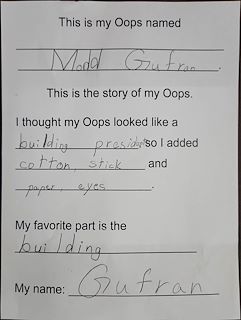 This is my Oops named
Mohd Gufran.
This is the story of my Oops.
I thought my Oops looked like a
building president so I added
cotton, stick and
paper, eyes.
My favorite part is the
building
My name: Gufran